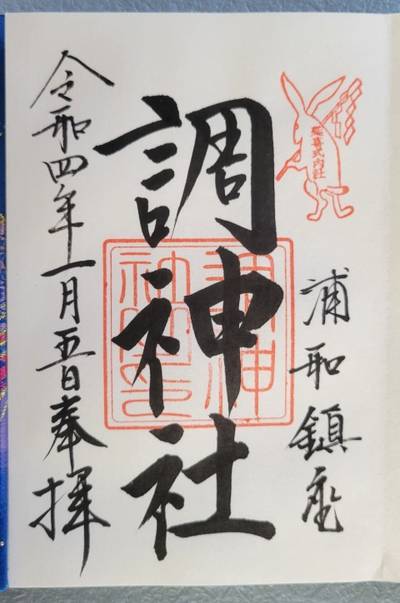 延喜式内社
浦和鎮座
調神社
調神社之印
令和四年一月五日奉拝